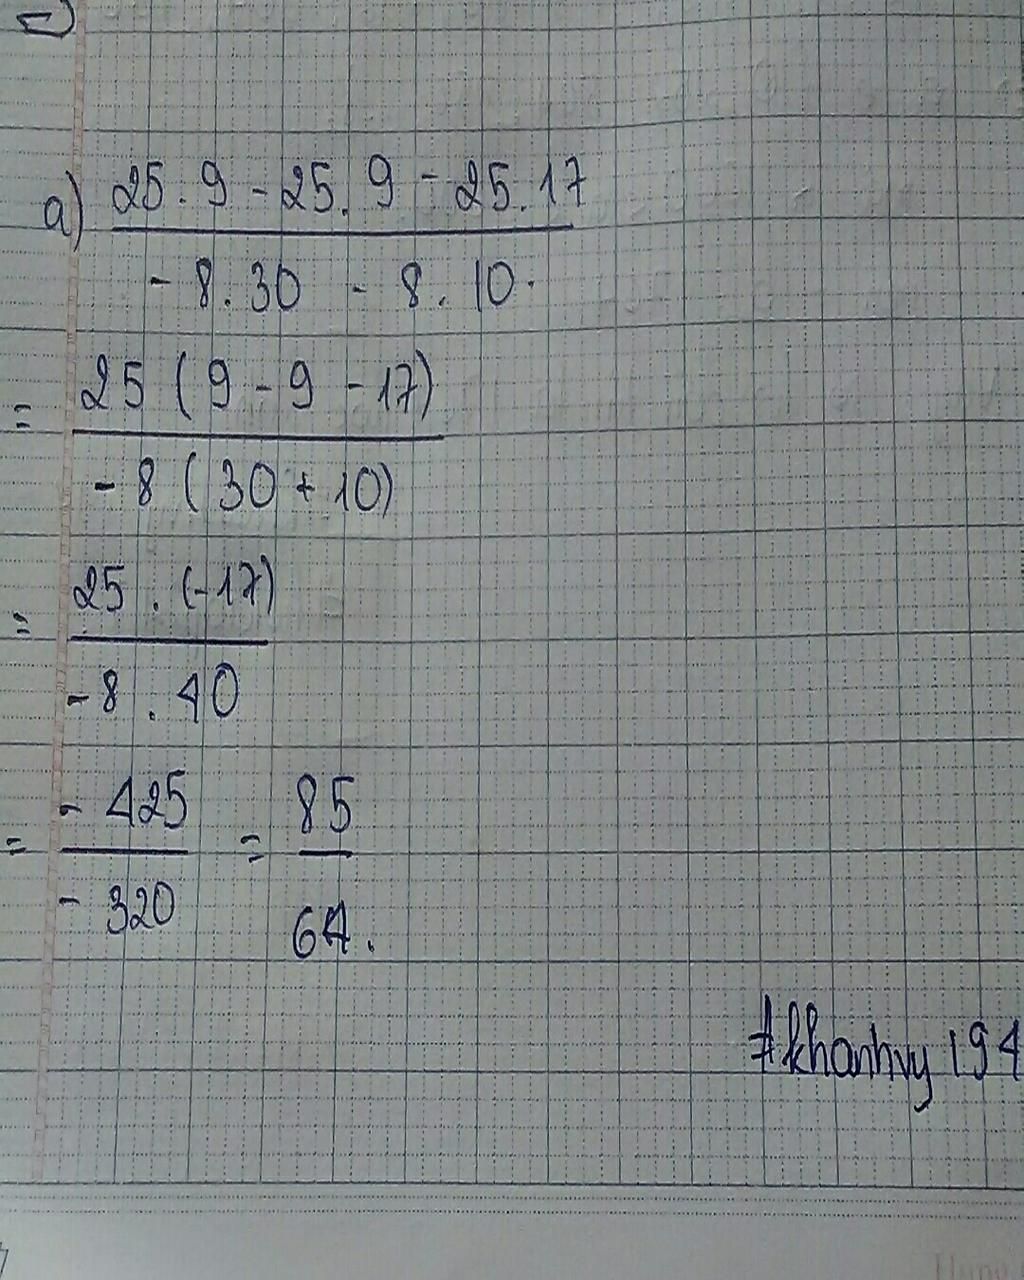 a) 25.9 - 25.9 - 25.17
- 8.30 - 8.10.
= 25 (9 - 9 - 17)
- 8 (30 + 10)
= 25 . (-17)
- 8 . 40
= - 425 = 85
- 320 64.
#khanhvy 194